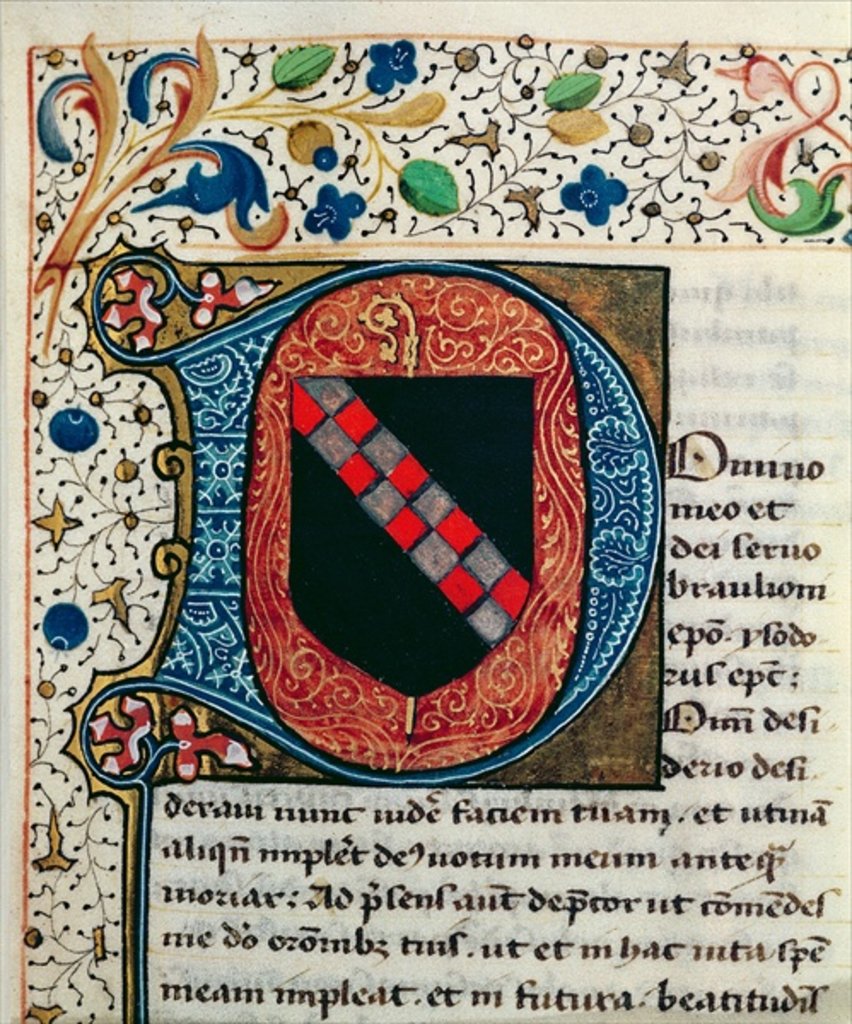 Domino
meo et
dei seruo
braulioni
ep̄o. ysodo
rus ep̄c:
Om̄i desi
derio desi
deraui nunc uidē faciem tuam. et utinā
aliqn̄ implēt deꝰ uotum meum anteq̄
moriar: Ad p̄sens aūt dep̄cor ut cōmēdes
me dō orōnibꝫ tuis. ut et in hac uita spē
meam impleat. et in futura. beatitudis